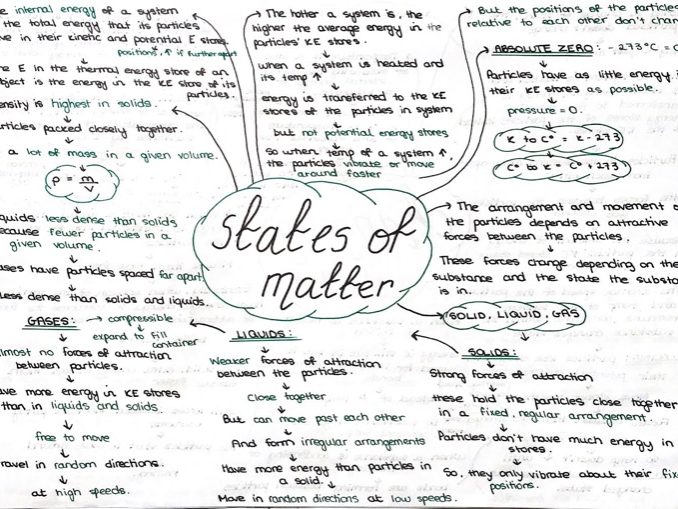 internal energy of a system
the total energy that its particles
in their kinetic and potential E stores.
positions, ↑ if further apart
E in the thermal energy store of an
is the energy in the KE store of its
particles.
is highest in solids.
packed closely together.
a lot of mass in a given volume.
ρ = m/V
less dense than solids
because fewer particles in a
given volume.
have particles spaced far apart.
less dense than solids and liquids.
The hotter a system is, the
higher the average energy in the
particles' KE stores.
when a system is heated and
its temp ↑
energy is transferred to the KE
stores of the particles in system
but not potential energy stores
so when temp of a system ↑,
the particles vibrate or move
around faster
But the positions of the particles
relative to each other don't
ABSOLUTE ZERO: -273°C =
Particles have as little energy
their KE stores as possible.
pressure = 0.
K to C° = K - 273
C° to K = C° + 273
states of
matter
The arrangement and movement
the particles depends on attractive
forces between the particles.
These forces change depending on the
substance and the state the
is in.
SOLID, LIQUID, GAS
GASES: → compressible
expand to fill
container
almost no forces of attraction
between particles.
have more energy in KE stores
than in liquids and solids
free to move
travel in random directions.
at high speeds.
LIQUIDS:
Weaker forces of attraction
between the particles.
Close together
But can move past each other
And form irregular arrangements
Have more energy than particles in
a solid.
Move in random directions at low speeds.
SOLIDS:
Strong forces of attraction
these hold the particles close together
in a fixed, regular arrangement.
Particles don't have much energy in
stores.
So, they only vibrate about their
positions.